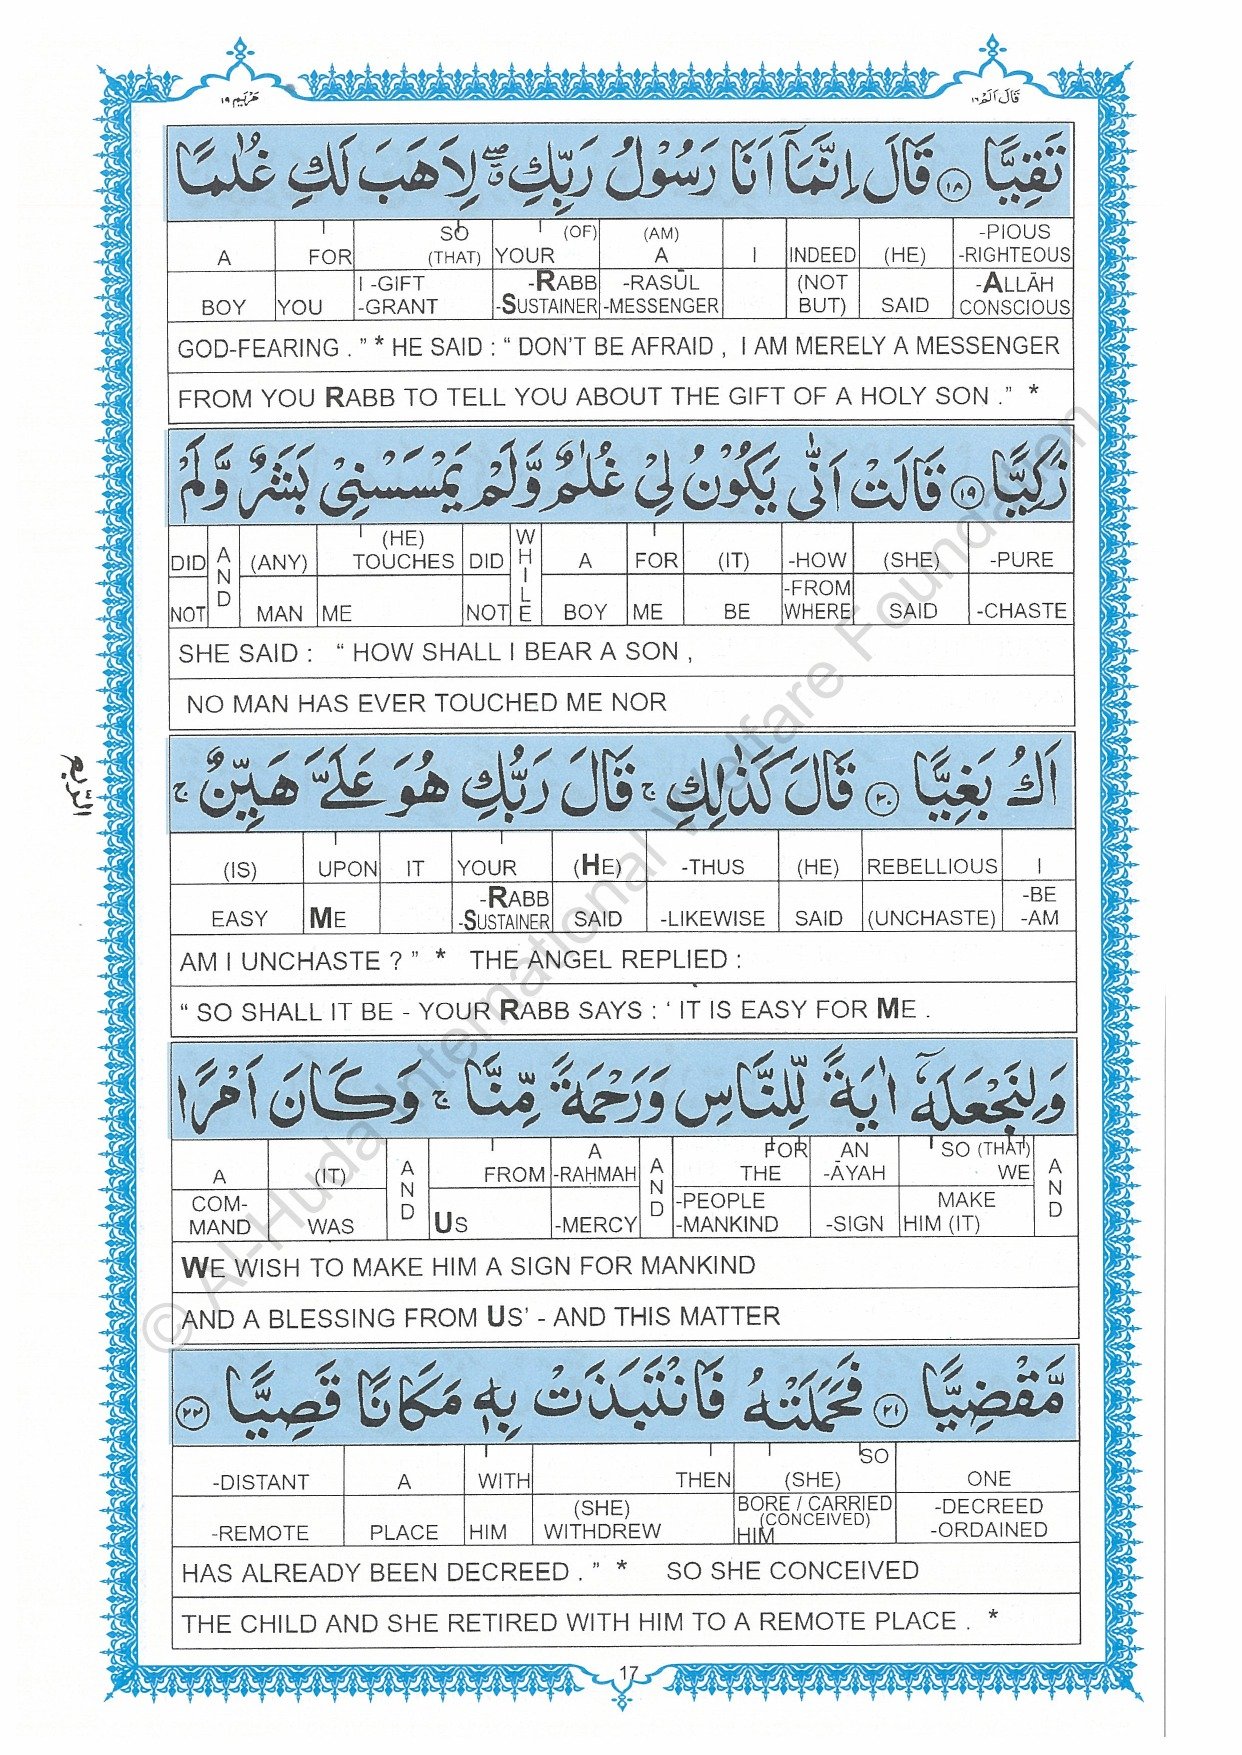 مريم ١٩
قال الم ١٦
تَقِيًّا ١٨ قَالَ اِنَّمَآ اَنَا رَسُوْلُ رَبِّكِ ۖ لِاَهَبَ لَكِ غُلٰمًا
A FOR SO (THAT) YOUR (OF) (AM) A I INDEED (HE) -PIOUS -RIGHTEOUS
BOY YOU I -GIFT -GRANT -RABB -SUSTAINER -RASŪL -MESSENGER (NOT BUT) SAID -ALLĀH CONSCIOUS
GOD-FEARING . ” * HE SAID : “ DON'T BE AFRAID , I AM MERELY A MESSENGER
FROM YOU RABB TO TELL YOU ABOUT THE GIFT OF A HOLY SON .” *
زَكِيًّا ١٩ قَالَتْ اَنّٰى يَكُوْنُ لِيْ غُلٰمٌ وَّلَمْ يَمْسَسْنِيْ بَشَرٌ وَّلَمْ
DID AND (ANY) (HE) TOUCHES DID WHILE A FOR (IT) -HOW (SHE) -PURE
NOT MAN ME NOT BOY ME BE -FROM WHERE SAID -CHASTE
SHE SAID : “ HOW SHALL I BEAR A SON ,
NO MAN HAS EVER TOUCHED ME NOR
اَكُ بَغِيًّا ٢٠ قَالَ كَذٰلِكِ ۚ قَالَ رَبُّكِ هُوَ عَلَيَّ هَيِّنٌ ۚ
(IS) UPON IT YOUR (HE) -THUS (HE) REBELLIOUS I
EASY ME -RABB -SUSTAINER SAID -LIKEWISE SAID (UNCHASTE) -BE -AM
AM I UNCHASTE ? ” * THE ANGEL REPLIED :
“ SO SHALL IT BE - YOUR RABB SAYS : ‘ IT IS EASY FOR ME .
وَلِنَجْعَلَهٗٓ اٰيَةً لِّلنَّاسِ وَرَحْمَةً مِّنَّا ۚ وَكَانَ اَمْرًا
A (IT) AND FROM A -RAḤMAH AND FOR THE AN -ĀYAH SO (THAT) WE AND
COM-MAND WAS US -MERCY -PEOPLE -MANKIND -SIGN MAKE HIM (IT)
WE WISH TO MAKE HIM A SIGN FOR MANKIND
AND A BLESSING FROM US’ - AND THIS MATTER
مَّقْضِيًّا ٢١ فَحَمَلَتْهُ فَانْتَبَذَتْ بِهٖ مَكَانًا قَصِيًّا ٢٢
-DISTANT A WITH THEN SO (SHE) ONE
-REMOTE PLACE HIM (SHE) WITHDREW BORE / CARRIED (CONCEIVED) HIM -DECREED -ORDAINED
HAS ALREADY BEEN DECREED . ” * SO SHE CONCEIVED
THE CHILD AND SHE RETIRED WITH HIM TO A REMOTE PLACE . *
17
© Al-Huda International Welfare Foundation